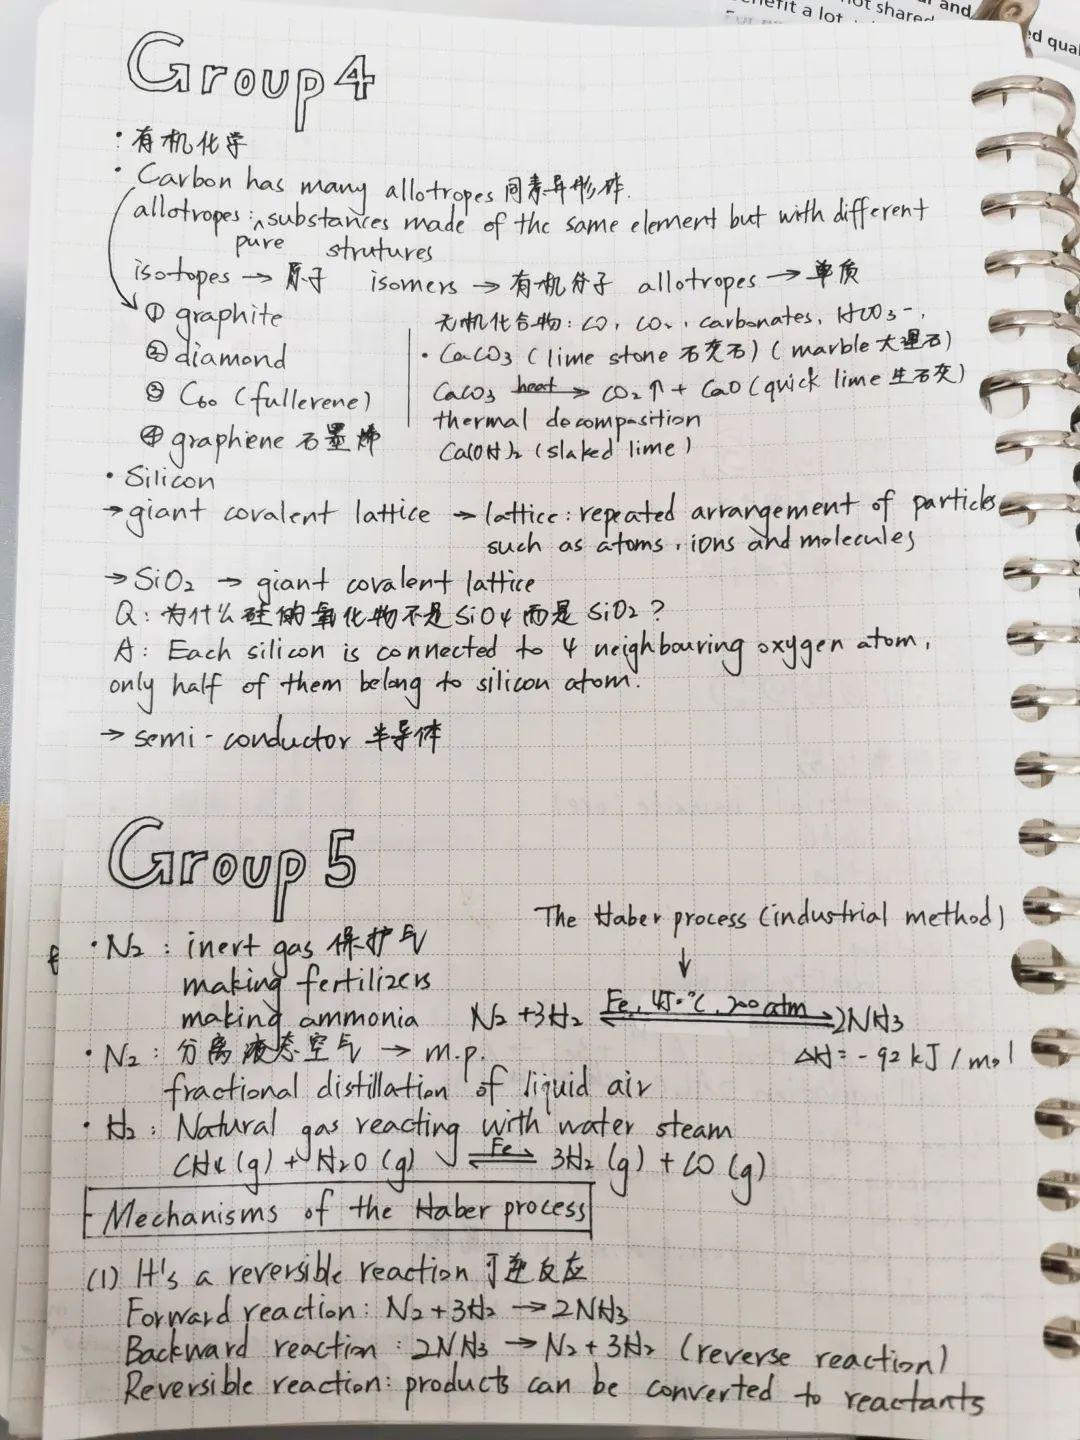 Group 4
· 有机化学
· Carbon has many allotropes 同素异形体.
allotropes: pure substances made of the same element but with different strutures
isotopes → 原子 isomers → 有机分子 allotropes → 单质
① graphite
② diamond
③ C60 (fullerene)
④ graphiene 石墨烯
无机化合物: CO, CO2, carbonates, HCO3-,
· CaCO3 (lime stone 石灰石) (marble 大理石)
CaCO3 heat→ CO2↑ + CaO (quick lime 生石灰)
thermal decomposition
Ca(OH)2 (slaked lime)
· Silicon
→ giant covalent lattice → lattice: repeated arrangement of particles
such as atoms, ions and molecules
→ SiO2 → giant covalent lattice
Q: 为什么硅的氧化物不是SiO4而是SiO2?
A: Each silicon is connected to 4 neighbouring oxygen atom,
only half of them belong to silicon atom.
→ semi-conductor 半导体
Group 5
The Haber process (industrial method)
↓
· N2: inert gas 保护气
making fertilizers
making ammonia
N2 + 3H2 Fe, 450°C, 200atm ⇌ 2NH3
ΔH = -92 kJ/mol
· N2: 分离液态空气 → m.p.
fractional distillation of liquid air
· H2: Natural gas reacting with water steam
CH4(g) + H2O(g) Fe ⇌ 3H2(g) + CO(g)
Mechanisms of the Haber process
(1) It's a reversible reaction 可逆反应
Forward reaction: N2 + 3H2 → 2NH3
Backward reaction: 2NH3 → N2 + 3H2 (reverse reaction)
Reversible reaction: products can be converted to reactants